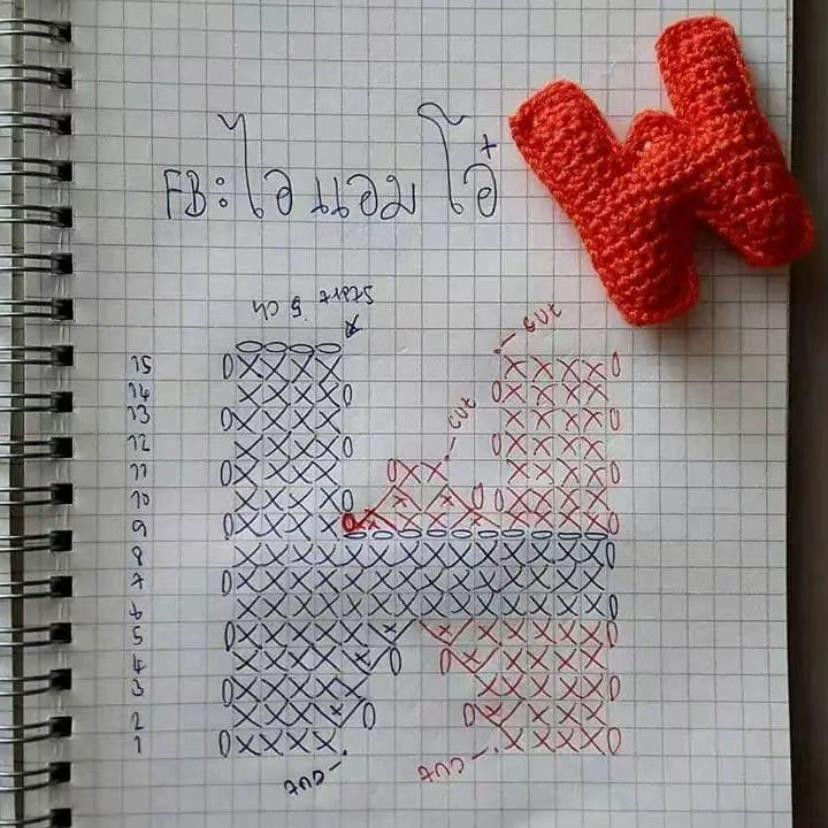 FB: ไอ แอม โอ๋
Start 5 ch
cut
15
14
cut
13
12
11
10
9
8
7
6
5
4
3
2
1
cut
cut